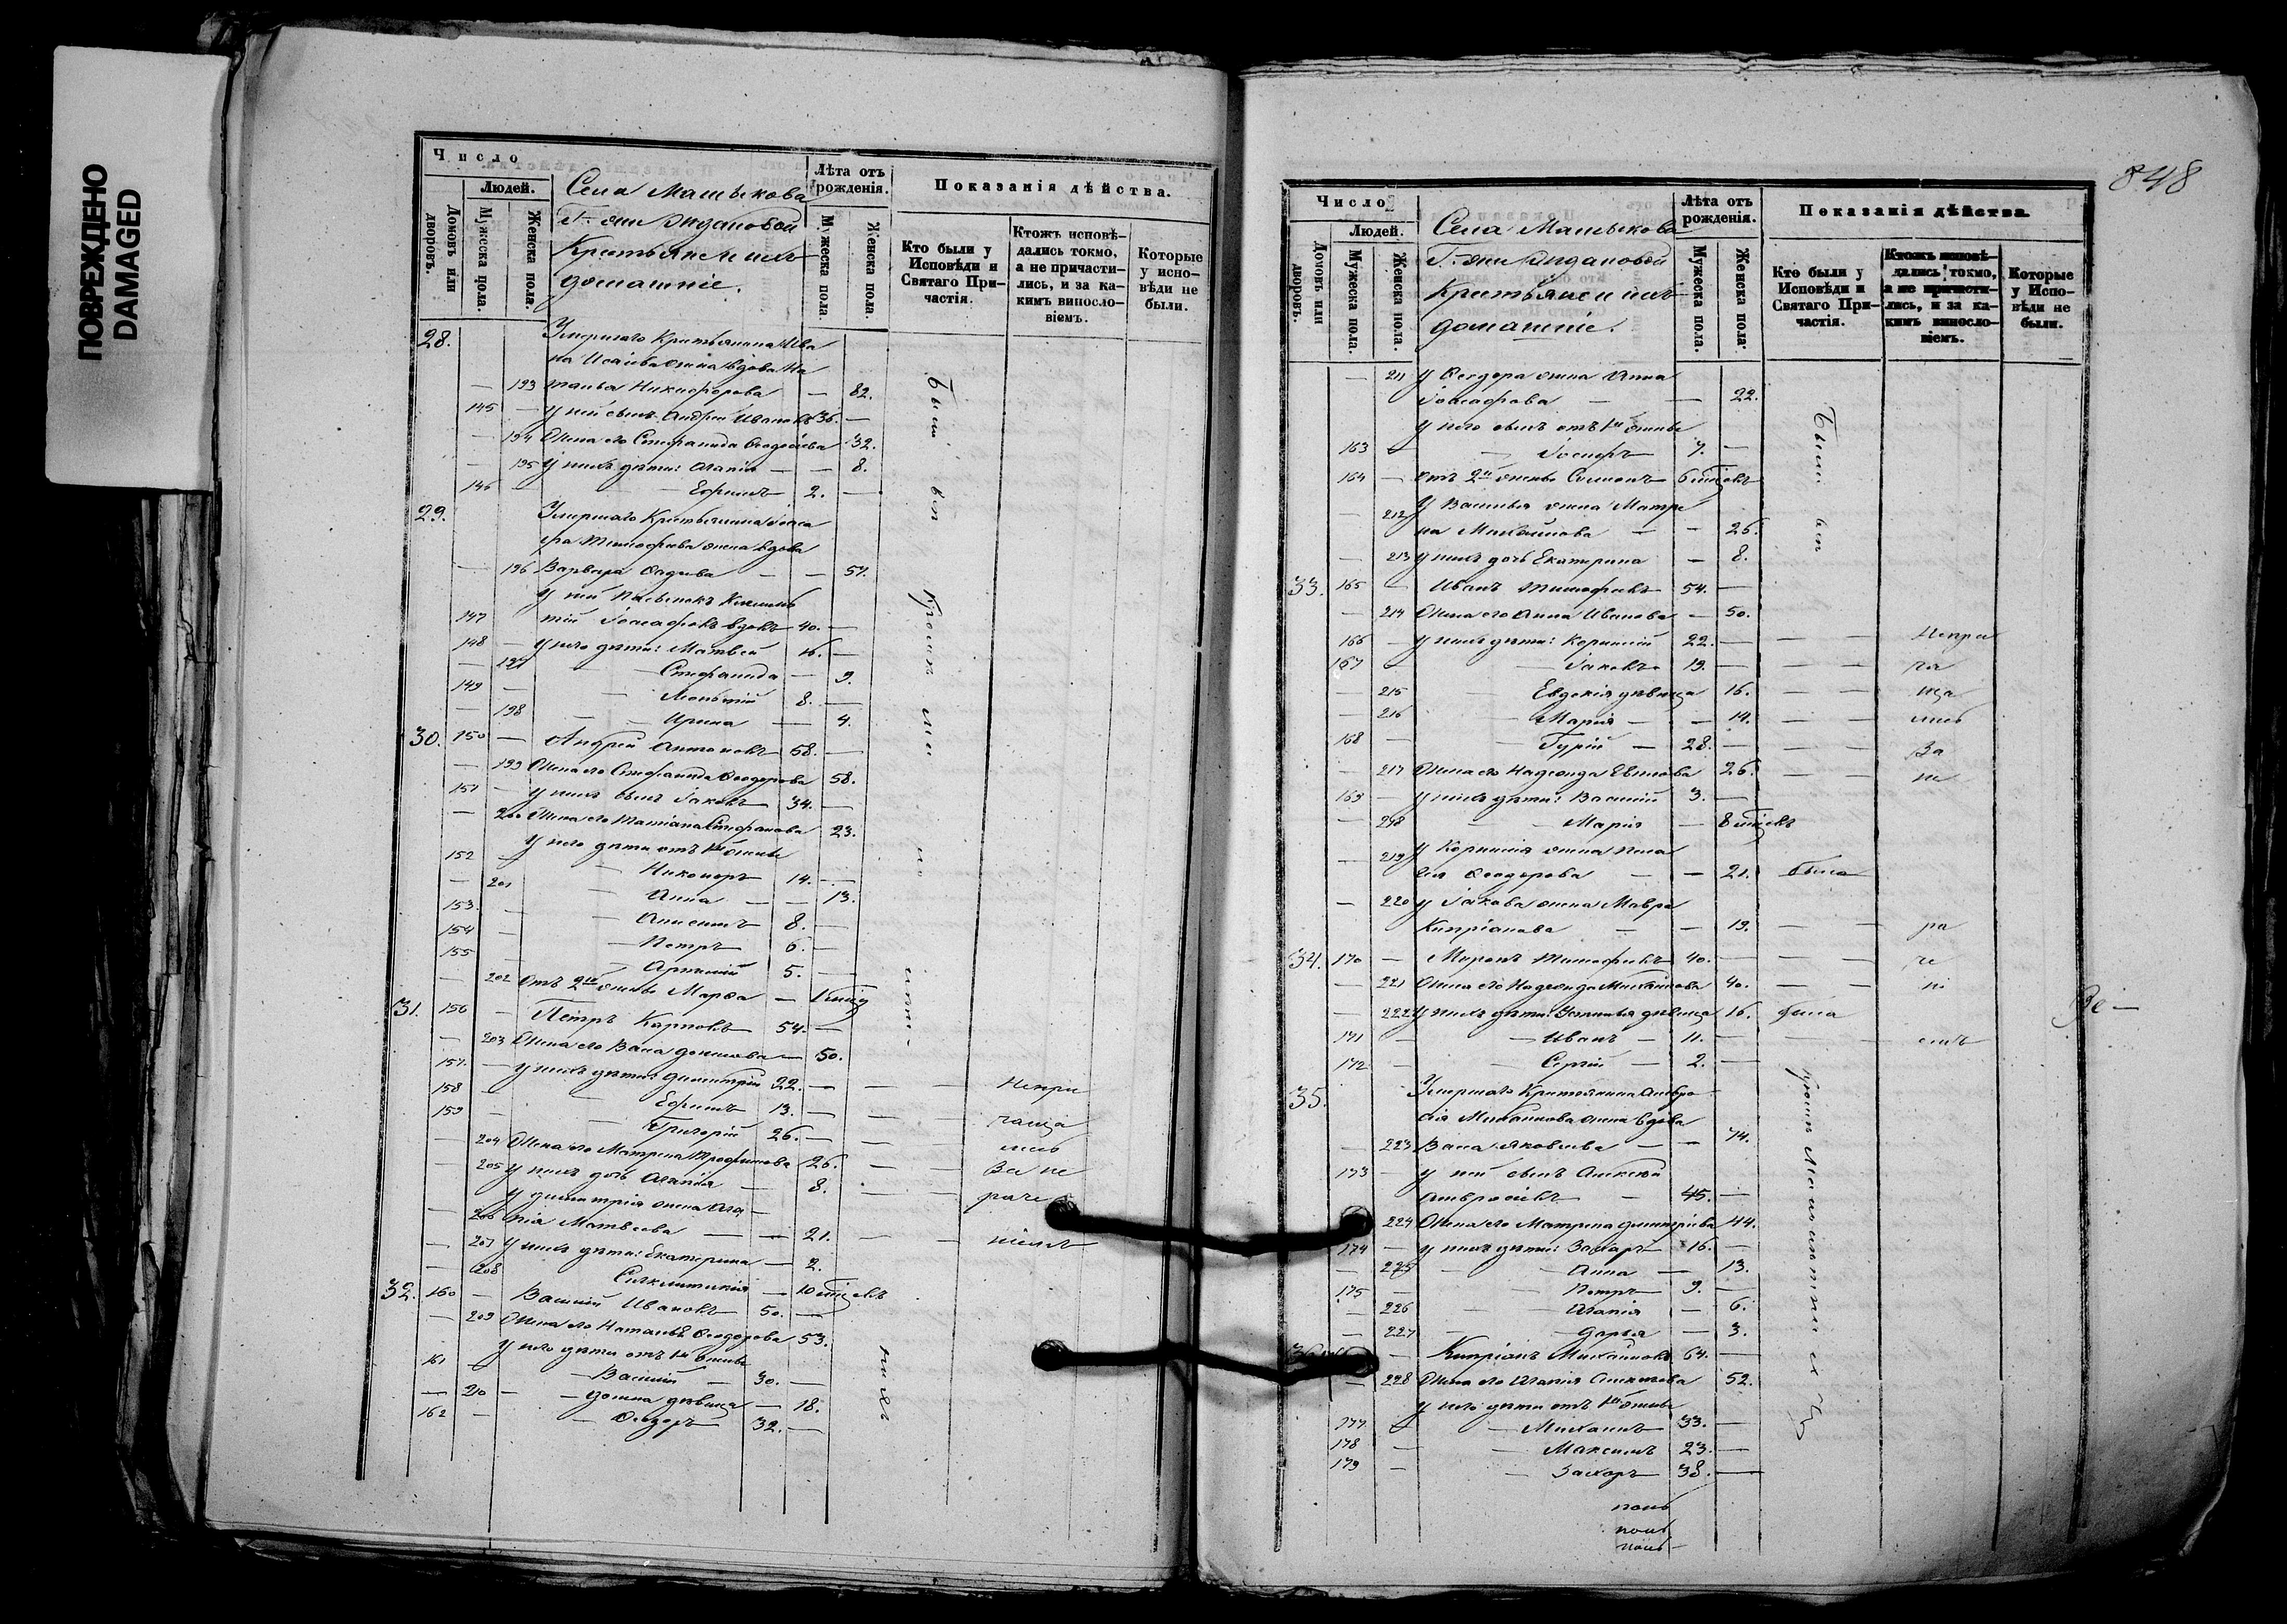 ПОВРЕЖДЕНО
DAMAGED
Число
Людей.
Домовъ или дворовъ.
Мужеска пола.
Женска пола.
Села Машыкова
Крестьяне и ихъ
домашніе.
Лѣта отъ рожденія.
Мужеска пола.
Женска пола.
Показанія дѣйства.
Кто были у Исповѣди и Святаго Причастія.
Ктожъ исповѣдались токмо, а не причастились, и за какимъ винословіемъ.
Которые у исповѣди не были.
28. Умершаго Крестьянина Ива
на Исаіева жена вдова На
193 талья Никифорова — 82.
145 — у ней сынъ Андрей Ивановъ 36. —
— 194 Жена его Стефанида 32.
— 195 у нихъ дѣти: Агапія — — 8.
146 — Ефимъ 2. —
29. Умершаго Крестьянина Іоаса
фа Тимофѣева жена вдова
— 196 Варвара — — 57.
у ней пасынокъ
147 Іоасафовъ вдовъ 40. —
148 — у него дѣти: Матвей 16. —
— 197 — Стефанида — 9.
149 — — 8. —
— 198 — Ирина — 4.
30. 150 — Андрей Антоновъ 58. —
— 199 Жена его Стефанида Ѳеодорова 58.
151 — у нихъ сынъ Іаковъ 34. —
— 200 Жена его Татіана Стефанова 23.
у него дѣти отъ 1й жены
152 — Никаноръ 14. —
— 201 — Анна — — 13.
153 — — Анисимъ 8. —
154 — — Петръ 6. —
155 — — 5. —
— 202 Отъ 2й жены Марѳа —
31. 156 — Петръ Карповъ 54. —
— 203 Жена его Васа — 50.
157 — у нихъ дѣти: Димитрій 22. — — — Непри
158 — Ефимъ 13. — —
159 — Григорій 26. — — чаща
— 204 Жена его Матрена Трофимова 26. — лись
— 205 у нихъ дочь Агапія — 8. — — За не
у Димитрія жена Ага
— 206 пія Матвеева — — 21. — — раче
— 207 у нихъ дѣти: Екатерина — 2. ніемъ
— 208 Синклитикія — 10 мѣсцовъ
32. 160 — Василій Ивановъ 50. —
— 209 Жена его Наталія Ѳеодорова 53.
у него дѣти отъ 1й жены
161 — — Василій — 30. —
— 210 — дѣвица — 18.
162 — — Ѳеодоръ 32. —
Были всѣ кромѣ мла
нихъ
848
Число
Людей.
Домовъ или дворовъ.
Мужеска пола.
Женска пола.
Села Машыкова
Крестьяне и ихъ
домашніе.
Лѣта отъ рожденія.
Мужеска пола.
Женска пола.
Показанія дѣйства.
Кто были у Исповѣди и Святаго Причастія.
Ктожъ исповѣдались токмо, а не причастились, и за какимъ винословіемъ.
Которые у Исповѣди не были.
— 211 у Ѳеодора жена Анна
Іоасафова — — 22.
у него сынъ отъ 1й жены
163 — — Іосифъ 7. —
164 — отъ 2й жены Симеонъ 6 мѣсцовъ
— 212 у Василья жена Матре
на Михайлова — — 26.
— 213 у нихъ дочь Екатерина — 8.
33. 165 — Иванъ Тимофѣевъ 54. —
— 214 Жена его Анна Иванова — 50.
166 — у нихъ дѣти: Корнилій 22. — — — Непри
167 — — Іаковъ 19. — — — ча
— 215 Евдокія дѣвица 16. — — ща
— 216 — Марія — — 14. — — лись
168 — — Гурій — 28. — — — За
— 217 Жена его Надежда 26. — — не
169 — у нихъ дѣти: Василій 3. —
— 218 — Марія — 8 мѣсцовъ
— 219 у Корнилія жена Пела
гія Ѳеодорова — — 21. была
— 220 у Іакова жена Мавра
Кипріанова — — 19. — — ра
34. 170 — Миронъ Тимофѣевъ 40. — — — че
— 221 Жена его Надежда Михайлова 40. — — ні
— 222 у нихъ дѣти: Устинья дѣвица 16. была
171 — — Иванъ — 11. — — — емъ
172 — — Сергій — 2. —
35. Умершаго Крестьянина Амвро
сія Михайлова жена вдова
— 223 Васа Яковлева — — 74.
173 — у ней сынъ Алексѣй
Амвросіевъ — 45. —
— 224 Жена его Матрена Димитріева 44.
174 — у нихъ дѣти: Захаръ 16. —
— 225 — Анна — 13.
175 — — Петръ 9. —
— 226 — Агапія — 6.
— 227 — Дарья — 3.
— Кипріанъ Михайловъ 64. —
— 228 Жена его Агапія Алексеева 52.
у него дѣти отъ 1й жены
177 — — Михаилъ 33. —
178 — — Максимъ 23. —
179 — — Захаръ 38. —
Были всѣ
кромѣ малолѣтнихъ